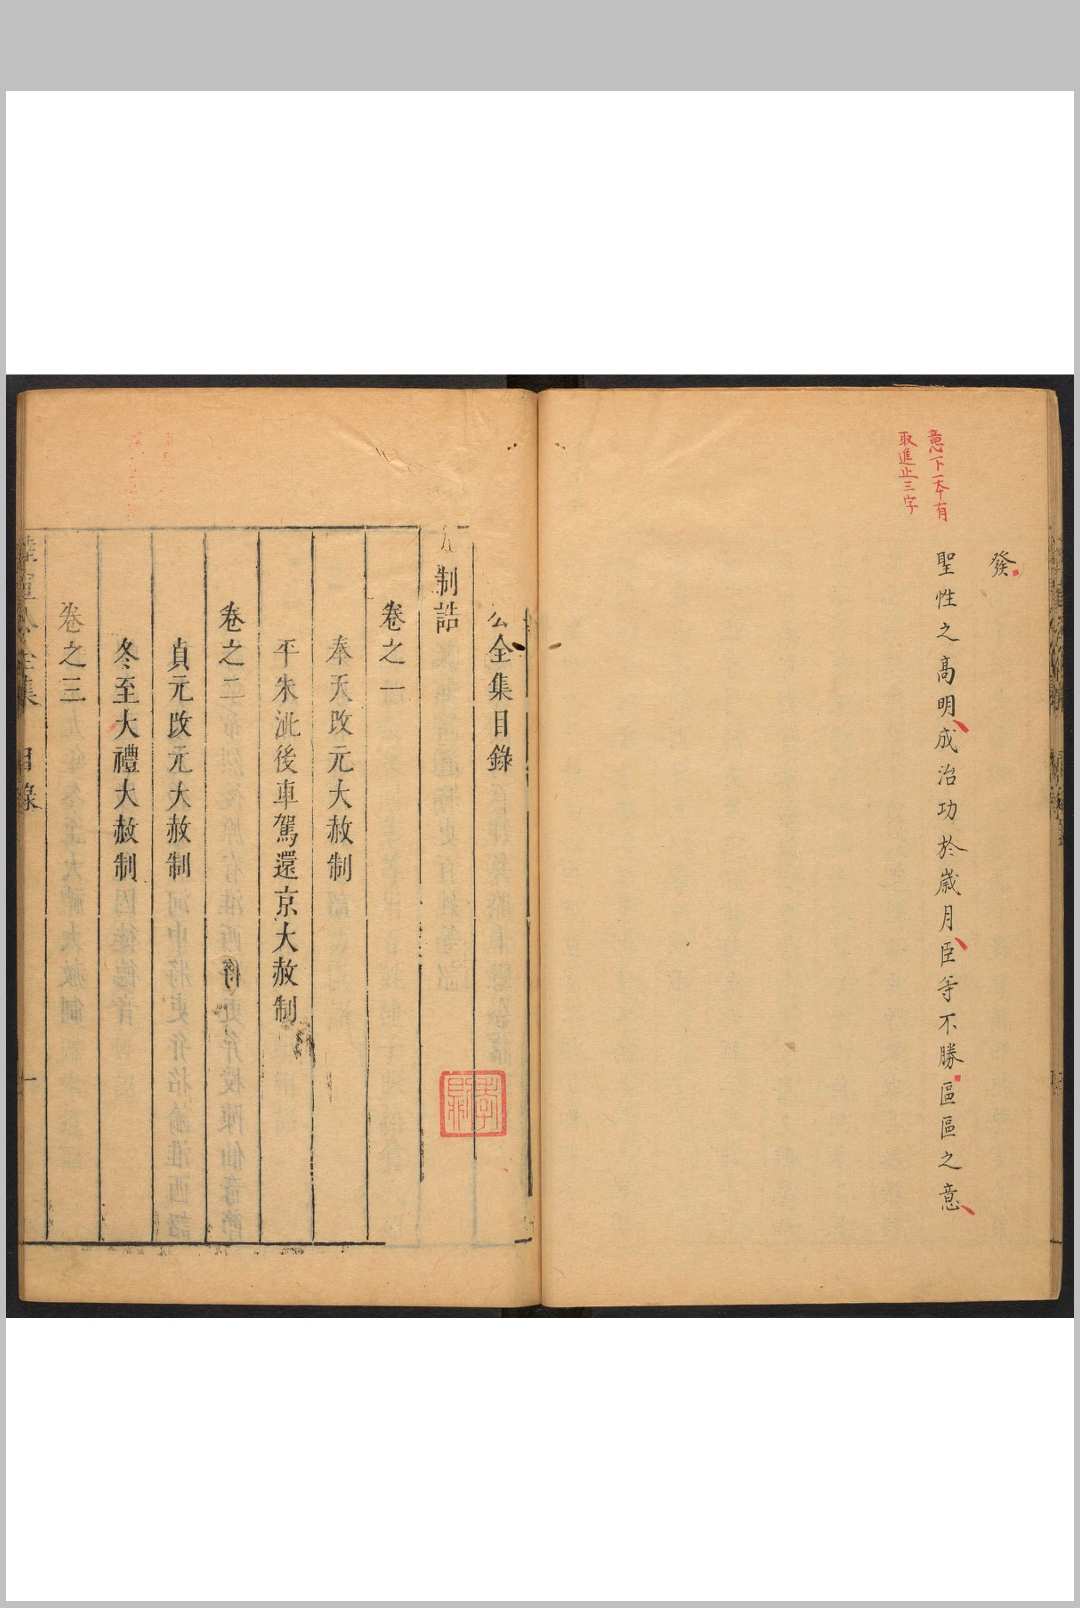 意下一本有
取進止三字
發
聖性之高明成治功於歲月臣等不勝區區之意
公全集目錄
制誥
卷之一
奉天改元大赦制
平朱泚後車駕還京大赦制
卷之二
貞元改元大赦制
冬至大禮大赦制
卷之三
陸宣公全集 目錄 一